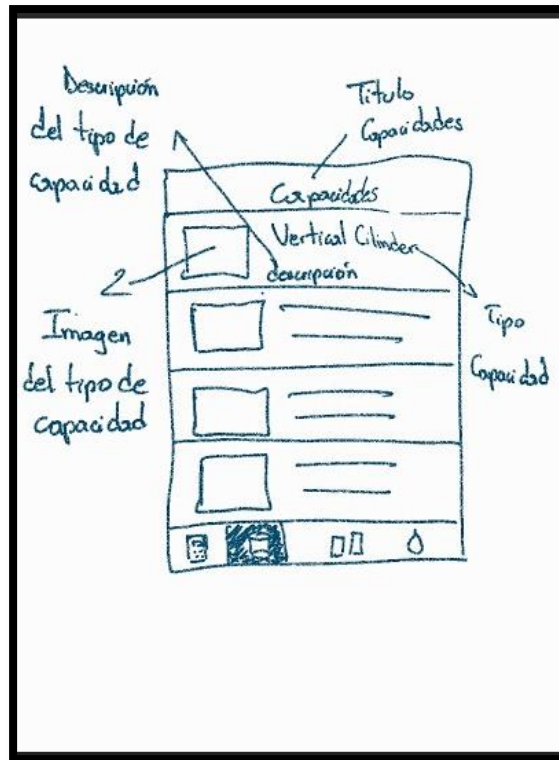 Descripción
del tipo de
capacidad
Titulo
Capacidades
Capacidades
Vertical Cilinder
descripción
Tipo
Capacidad
Imagen
del tipo de
capacidad